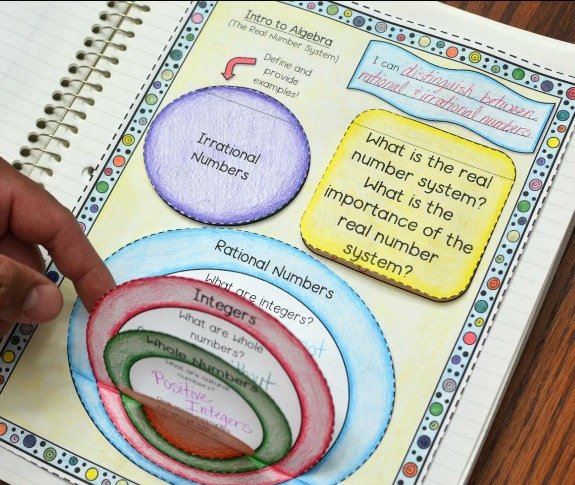 Intro to Algebra
(The Real Number System)
I can distinguish between
rational & irrational numbers.
Define and
provide
examples!
Irrational
Numbers
What is the real
number system?
What is the
importance of the
real number
system?
Rational Numbers
What are integers?
Integers
What are whole
numbers?
Whole Numbers
What are natural
numbers?
Positive
Integers